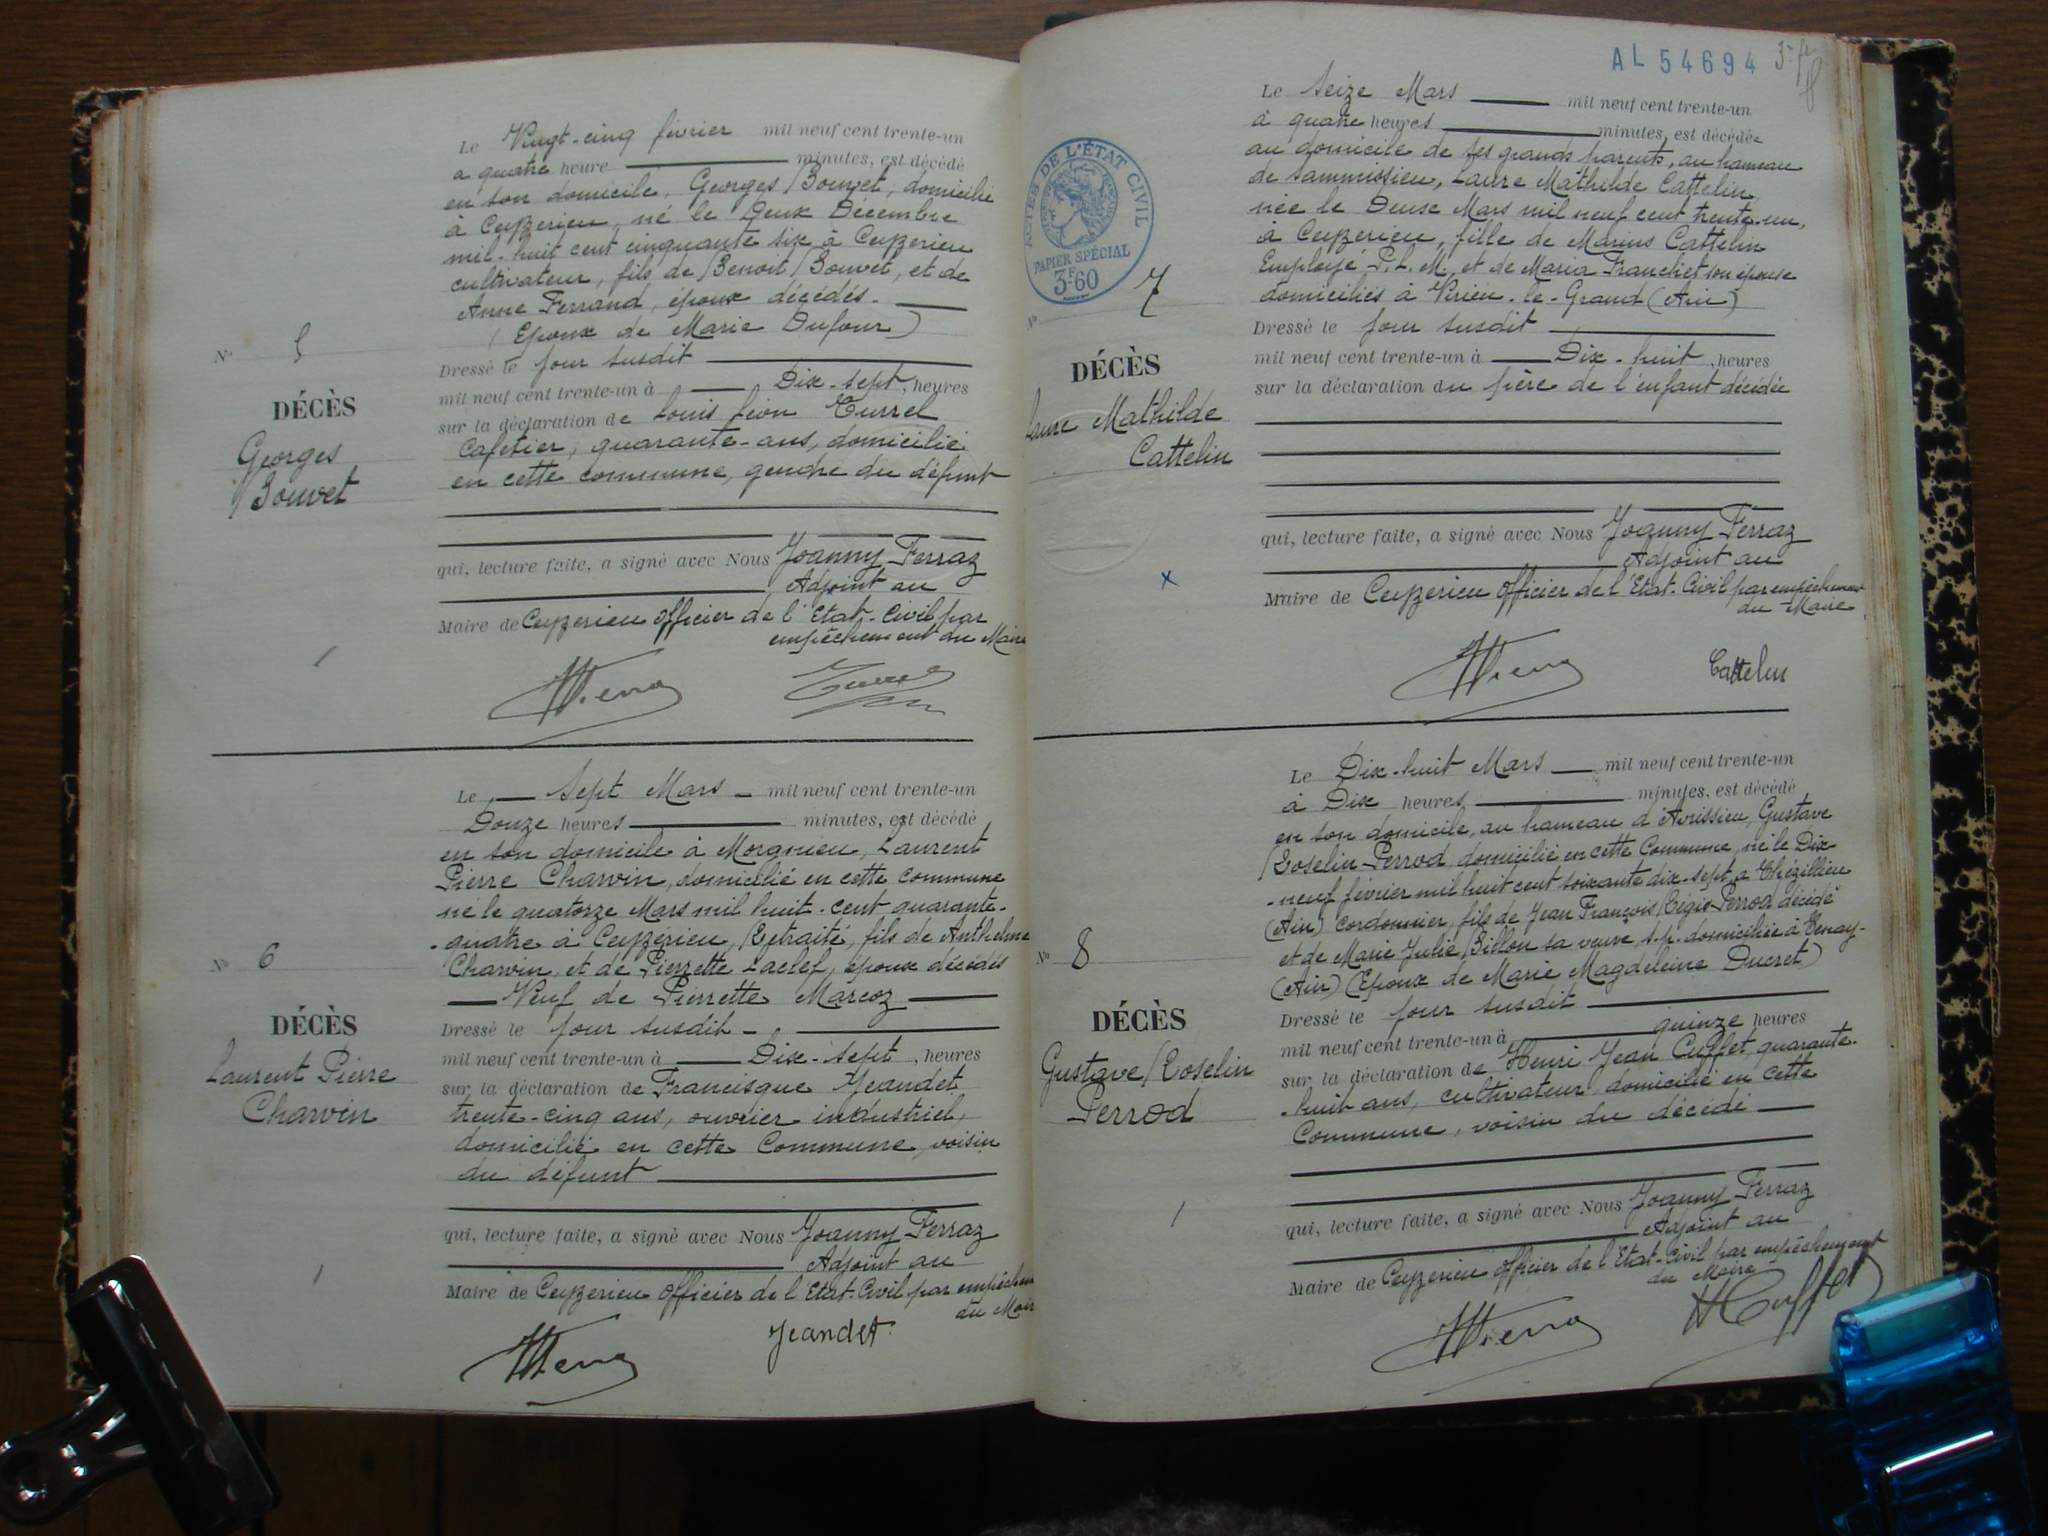 Le Vingt-cinq février mil neuf cent trente-un
a quatre heure minutes, est décédé
en son domicile, Georges Bouvet, domicilié
à Ceyzerieu, né le Deux Décembre
mil-huit cent cinquante six à Ceyzerieu
cultivateur, fils de Benoit Bouvet, et de
Anne Ferrand, époux décédés.
(Epoux de Marie Dufour)
Nº 5
Dressé le jour susdit
mil neuf cent trente-un à Dix-sept, heures
DÉCÈS
sur la déclaration de Louis Léon Turrel
Georges
Bouvet
Cafetier, quarante-ans, domicilié
en cette commune, gendre du défunt
qui, lecture faite, a signé avec Nous Joanny Ferraz
Adjoint au
Maire de Ceyzerieu officier de l'Etat-Civil par
empêchement du Maire
Le Sept Mars mil neuf cent trente-un
Douze heures minutes, est décédé
en son domicile à Morgnieu, Laurent
Pierre Charvin, domicilié en cette commune
né le quatorze Mars mil huit-cent quarante-
-quatre à Ceyzérieu, Retraité, fils de Anthelme
Nº 6
Charvin, et de Pierrette Laclef, époux décédés
Veuf de Pierrette Marcoz
DÉCÈS
Laurent Pierre
Charvin
Dressé le jour susdit
mil neuf cent trente-un à Dix-sept, heures
sur la déclaration de Francisque Jeandet
trente-cinq ans, ouvrier industriel,
domicilié en cette Commune, voisin
du défunt
qui, lecture faite, a signé avec Nous Joanny Ferraz
Adjoint au
Maire de Ceyzerieu officier de l'Etat-Civil par
du
Jeandet
AL 54694
Le Seize Mars mil neuf cent trente-un
à quatre heures minutes, est décédée
au domicile de ses grands parents, au hameau
de Sammissieu, Laure Mathilde Cattelin
née le Deux Mars mil neuf cent trente-un,
à Ceyzerieu, fille de Marius Cattelin
Employé P.L.M, et de Maria Franchet son épouse
domiciliés à Virieu-le-Grand (Ain)
ACTES DE L'ÉTAT CIVIL
PAPIER SPÉCIAL
3F60
Nº 7
Dressé le jour susdit
mil neuf cent trente-un à Dix-huit, heures
DÉCÈS
sur la déclaration du père de l'enfant décédée
Laure Mathilde
Cattelin
qui, lecture faite, a signé avec Nous Joanny Ferraz
Adjoint au
Maire de Ceyzerieu officier de l'Etat-Civil par empêchement
du Maire
Cattelin
Le Dix-huit Mars mil neuf cent trente-un
à Dix heures minutes, est décédé
en son domicile, au hameau d'Avrissieu, Gustave
Roselin Perrod domicilié en cette Commune, né le Dix
-neuf février mil huit cent soixante dix-sept, a Thézillieu
(Ain) Cordonnier, fils de Jean François Régis Perrod décédé
et de Marie Julie Billon sa veuve, s.p. domiciliée à Tenay-
(Ain) (Epoux de Marie Magdeleine Ducret)
Nº 8
Dressé le jour susdit
mil neuf cent trente-un à quinze heures
DÉCÈS
Gustave Roselin
Perrod
sur la déclaration de Henri Jean Cuffet quarante-
-huit ans, cultivateur, domicilié en cette
Commune, voisin du décédé
qui, lecture faite, a signé avec Nous Joanny Ferraz
Adjoint au
Maire de Ceyzerieu officier de l'Etat-Civil par empêchement
du Maire